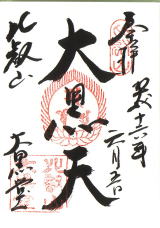 奉拝
平成十六年
六月五日
大黒天
比叡山
大黒堂